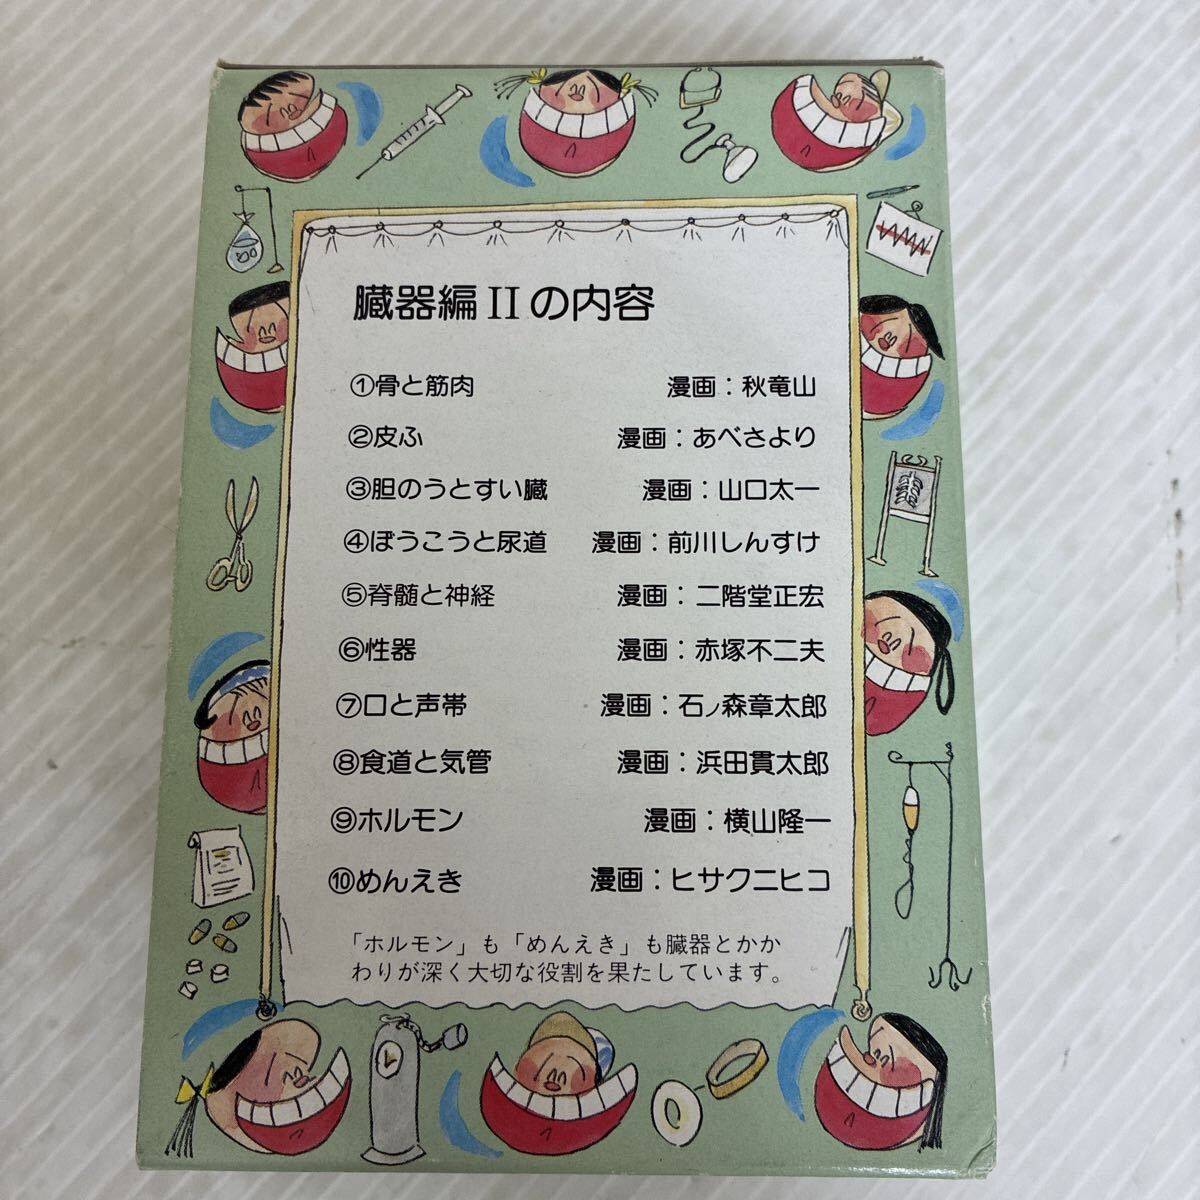 臓器編IIの内容
①骨と筋肉 漫画：秋竜山
②皮ふ 漫画：あべさより
③胆のうとすい臓 漫画：山口太一
④ぼうこうと尿道 漫画：前川しんすけ
⑤脊髄と神経 漫画：二階堂正宏
⑥性器 漫画：赤塚不二夫
⑦口と声帯 漫画：石ノ森章太郎
⑧食道と気管 漫画：浜田貫太郎
⑨ホルモン 漫画：横山隆一
⑩めんえき 漫画：ヒサクニヒコ
「ホルモン」も「めんえき」も臓器とかか
わりが深く大切な役割を果たしています。